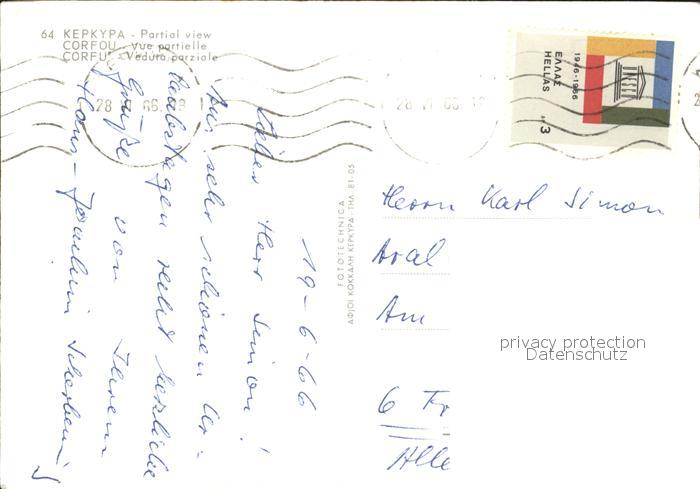 64 ΚΕΡΚΥΡΑ - Partial view
CORFOU - Vue partielle
CORFU - Veduta parziale
1946-1966
ΕΛΛΑΣ
HELLAS
UNESCO
3
28 VI 66
28 VI 66
19-6-66
Lieber Herr Simon!
Aus sehr schönen Ur-
laubstagen recht herzliche
Grüße von Ihrem
Hans-Joachim
FOTOTECHNICA
ΑΦΙΟΙ ΚΟΚΚΑΛΗ ΚΕΡΚΥΡΑ·ΤΗΛ. 81-05
Herrn Karl Simon
Aral
Am
6 Fr
Alle
privacy protection
Datenschutz